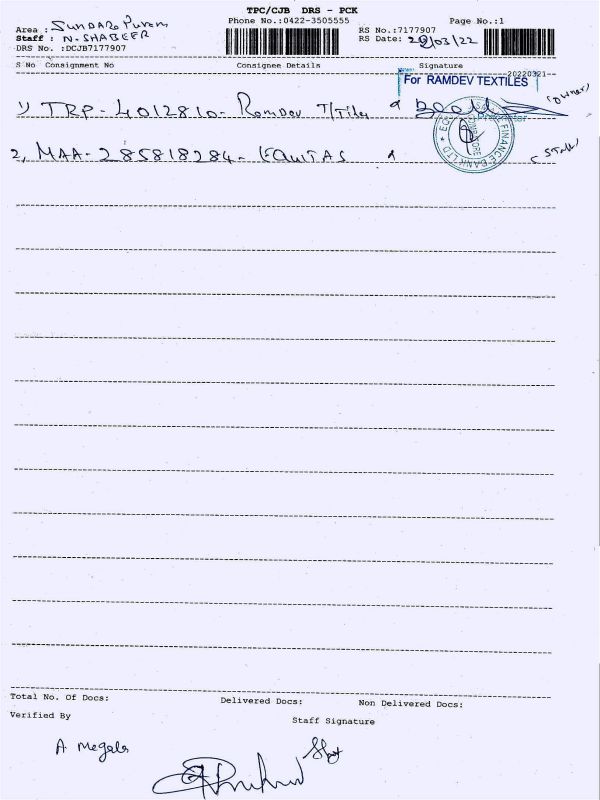 TPC/CJB DRS - PCK
Phone No.:0422-3505555 Page No.:1
Area : SUNDARA Puram
Staff : N. SHABEER
DRS No. :DCJB7177907
RS No.:7177907
RS Date: /03/22
S No Consignment No Consignee Details Signature
20220321
For RAMDEV TEXTILES
1) TRP - 4012810 - Ramdev T/Tiles (owner)
Proprietor
FINANCE BANK LTD
2, MAA - 285818284 - EQUITAS (Staff)
Total No. Of Docs: Delivered Docs: Non Delivered Docs:
Verified By Staff Signature
A. Megala